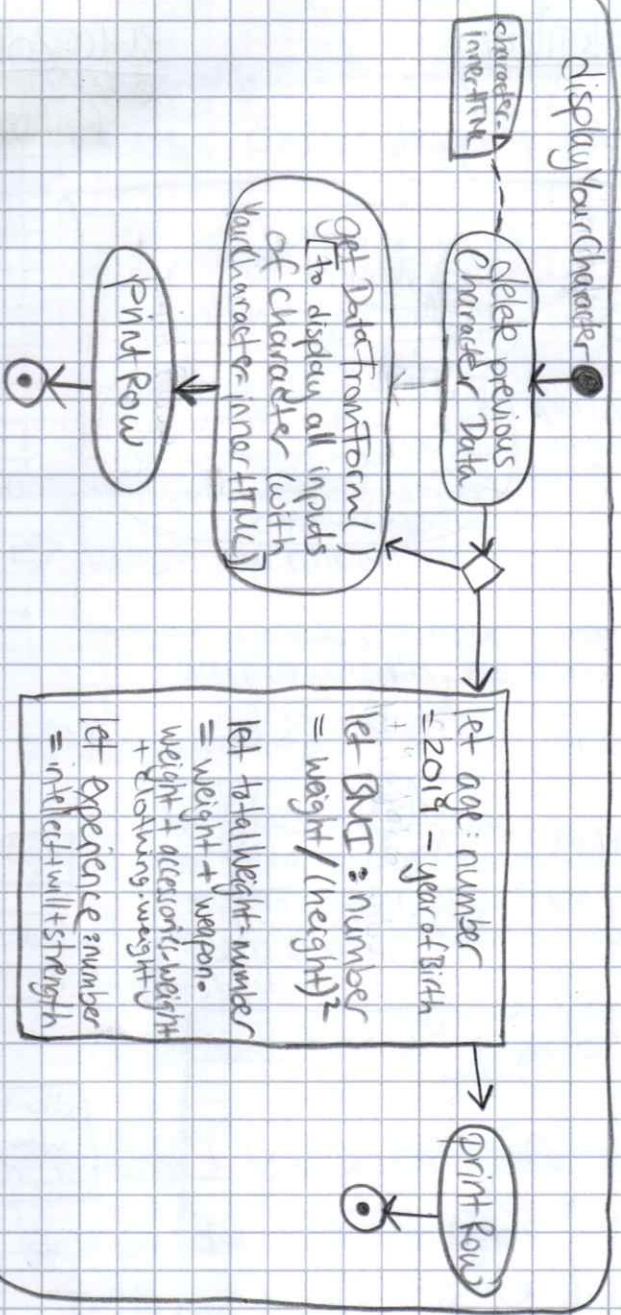 displayYourCharacter
character.
innerHTML
delete previous
Character Data
getDataFromForm()
[to display all inputs
of character (with
YourCharacter.innerHTML)]
print Row
let age: number
= 2019 - yearofBirth
let BMI: number
= weight/(height)²
let totalWeight: number
= weight + weapon.
weight + accessories.weight
+ clothing.weight
let experience: number
= intellect+will+strength
print Row